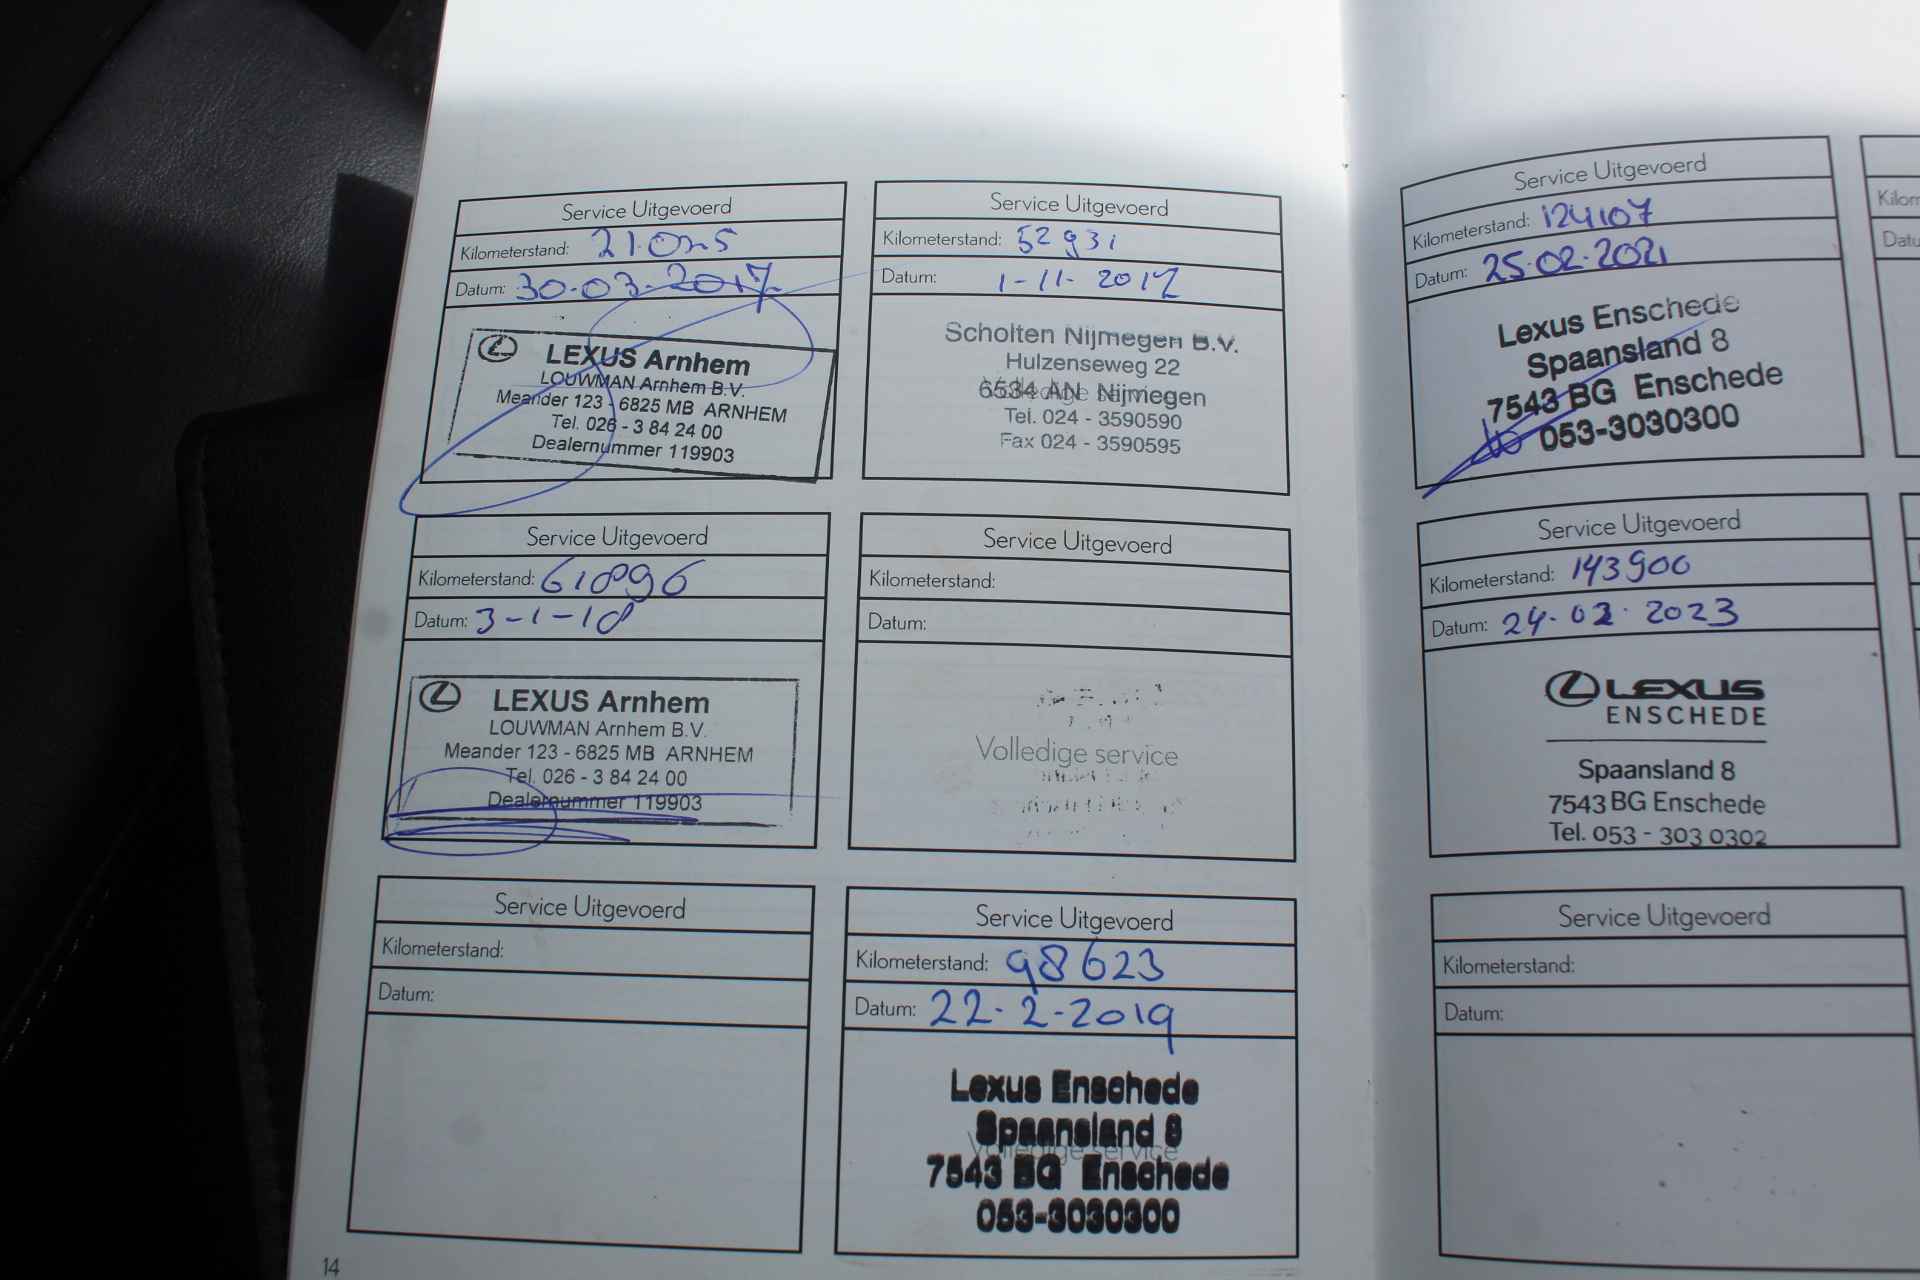 Service Uitgevoerd
Kilometerstand:
Datum: 30-03-2017
LEXUS Arnhem
LOUWMAN Arnhem B.V.
Meander 123 - 6825 MB ARNHEM
Tel. 026 - 3 84 24 00
Dealernummer 119903
Service Uitgevoerd
Kilometerstand: 52931
Datum: 1-11-2017
Scholten Nijmegen B.V.
Hulzenseweg 22
Volledige service
6534 AN Nijmegen
Tel. 024 - 3590590
Fax 024 - 3590595
Service Uitgevoerd
Kilometerstand: 61896
Datum: 3-1-18
LEXUS Arnhem
LOUWMAN Arnhem B.V.
Meander 123 - 6825 MB ARNHEM
Tel. 026 - 3 84 24 00
Dealernummer 119903
Service Uitgevoerd
Kilometerstand:
Datum:
Volledige service
Service Uitgevoerd
Kilometerstand:
Datum:
Service Uitgevoerd
Kilometerstand: 98623
Datum: 22-2-2019
Lexus Enschede
Spaansland 8
Volledige service
7543 BG Enschede
053-3030300
14
Service Uitgevoerd
Kilometerstand: 124107
Datum: 25-02-2021
Lexus Enschede
Spaansland 8
7543 BG Enschede
053-3030300
Service Uitgevoerd
Kilometerstand: 143900
Datum: 24-02-2023
LEXUS
ENSCHEDE
Spaansland 8
7543 BG Enschede
Tel. 053 - 303 0302
Service Uitgevoerd
Kilometerstand:
Datum: